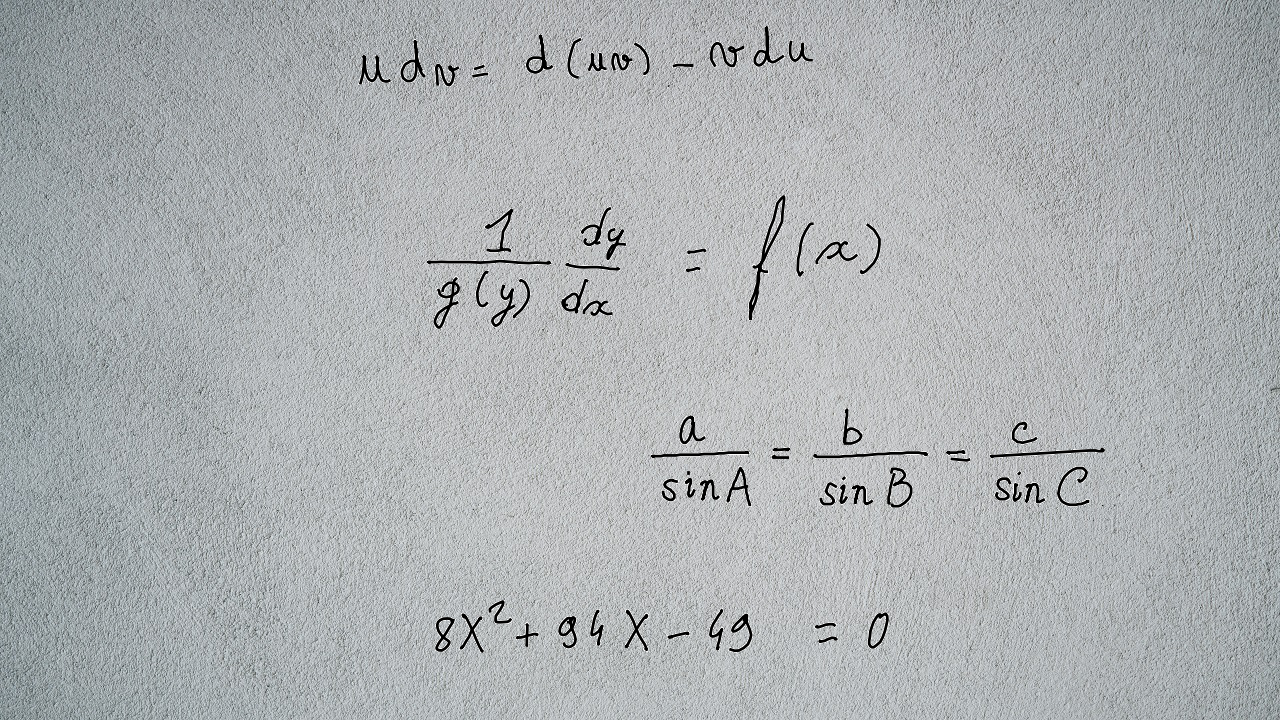 u dv = d(uv) - v du
\frac{1}{g(y)} \frac{dy}{dx} = f(x)
\frac{a}{sin A} = \frac{b}{sin B} = \frac{c}{sin C}
8X^2 + 94X - 49 = 0